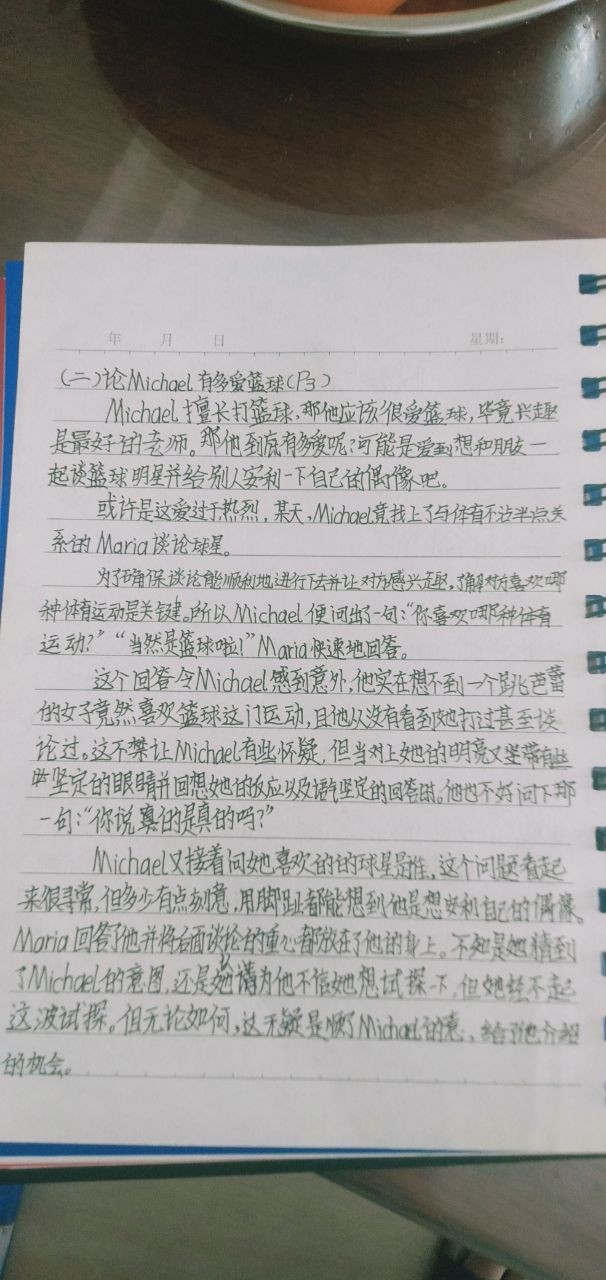 年 月 日 星期:
(二)论Michael有多爱篮球(P3)
Michael擅长打篮球,那他应该很爱篮球,毕竟兴趣
是最好的老师。那他到底有多爱呢?可能是爱到想和朋友一
起谈篮球明星并给别人安利一下自己的偶像吧。
或许是这爱过于热烈,某天,Michael竟找上了与体育不沾半点关
系的Maria谈论球星。
为了确保谈论能顺利地进行下去并让对方感兴趣,了解对方喜欢哪
种体育运动是关键。所以Michael便问出了一句:“你喜欢哪种体育
运动?”“当然是篮球啦!”Maria快速地回答。
这个回答令Michael感到意外,他实在想不到一个跳芭蕾
的女子竟然喜欢篮球这门运动,且他从没有看到她打过甚至谈
论过。这不禁让Michael有些怀疑,但当对上她的明亮又带有些
坚定的眼睛并回想她的反应以及语气坚定的回答时。他也不好问下那
一句:“你说真的是真的吗?”
Michael又接着问她喜欢的的球星是谁。这个问题看起
来很寻常,但多少有点刻意,用脚趾都能想到他是想安利自己的偶像。
Maria回答了他并将后面谈论的重心都放在了他的身上。不知是她猜到
了Michael的意图,还是她请为他不信她想试探一下,但她经不起
这波试探。但无论如何,这无疑是顺了Michael的意,给了他介绍
的机会。